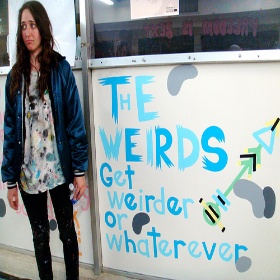 THE
WEIRDS
Get
weirder
or
whaterever